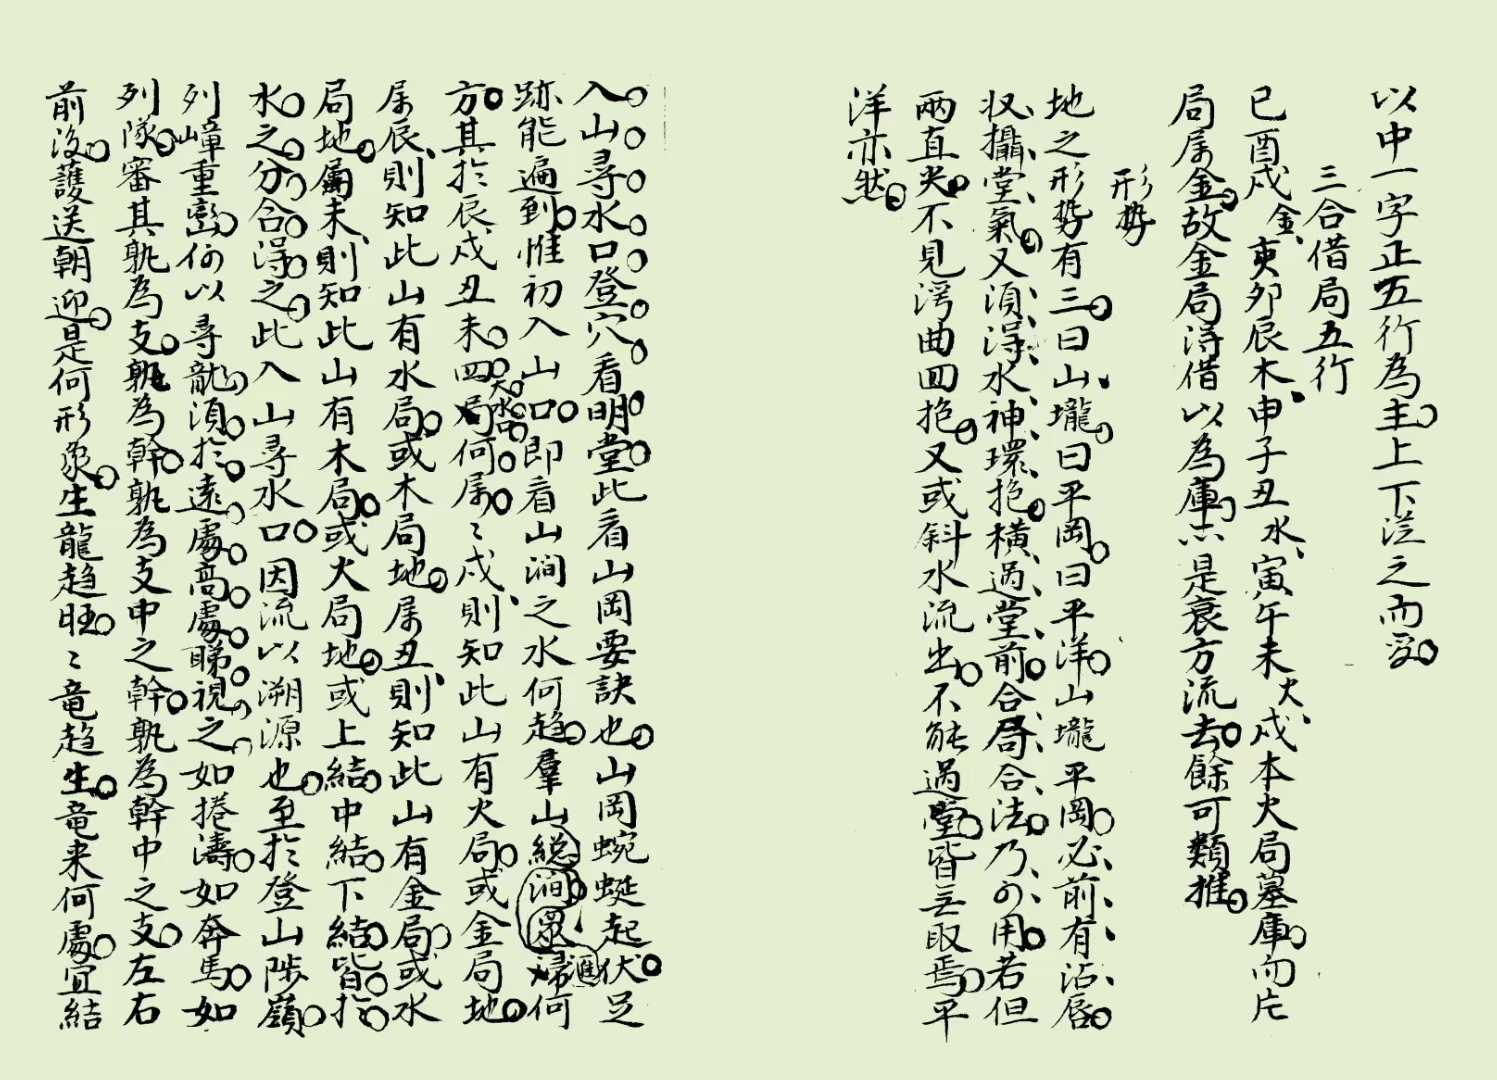 以中一字正五行為主上下從之而習
三合借局五行
巳酉戌金亥卯辰木申子丑水寅午未火戌本火局墓庫而庀
局属金故金局得借以為庫亦是衰方流去餘可類推
形勢
地之形勢有三曰山壠曰平岡曰平洋山壠平岡必前有沾唇
収攝堂氣又須得水神環抱横過堂前合局合法乃可用若但
兩直夾不見湾曲回抱又或斜水流出不能過堂皆無取焉平
洋亦然
入山尋水口登穴看明堂此看山岡要訣也山岡蜿蜒起伏足
跡能遍到惟初入山口即看山澗之水何趋羣山総澗眾滙歸何
方其於辰戌丑未四大水口局何属〻戌則知此山有火局或金局地
属辰則知此山有水局或木局地属丑則知此山有金局或水
局地屬未則知此山有木局或火局地或上結中結下結皆於
水之分合得之此入山尋水口因流以溯源也至於登山陟嶺
列嶂重巒何以尋龍須於遠處高處睇視之如捲濤如奔馬如
列隊審其孰為支孰為幹孰為支中之幹孰為幹中之支左右
前後護送朝迎是何形象生龍趋旺〻竜趋生竜来何處宜結